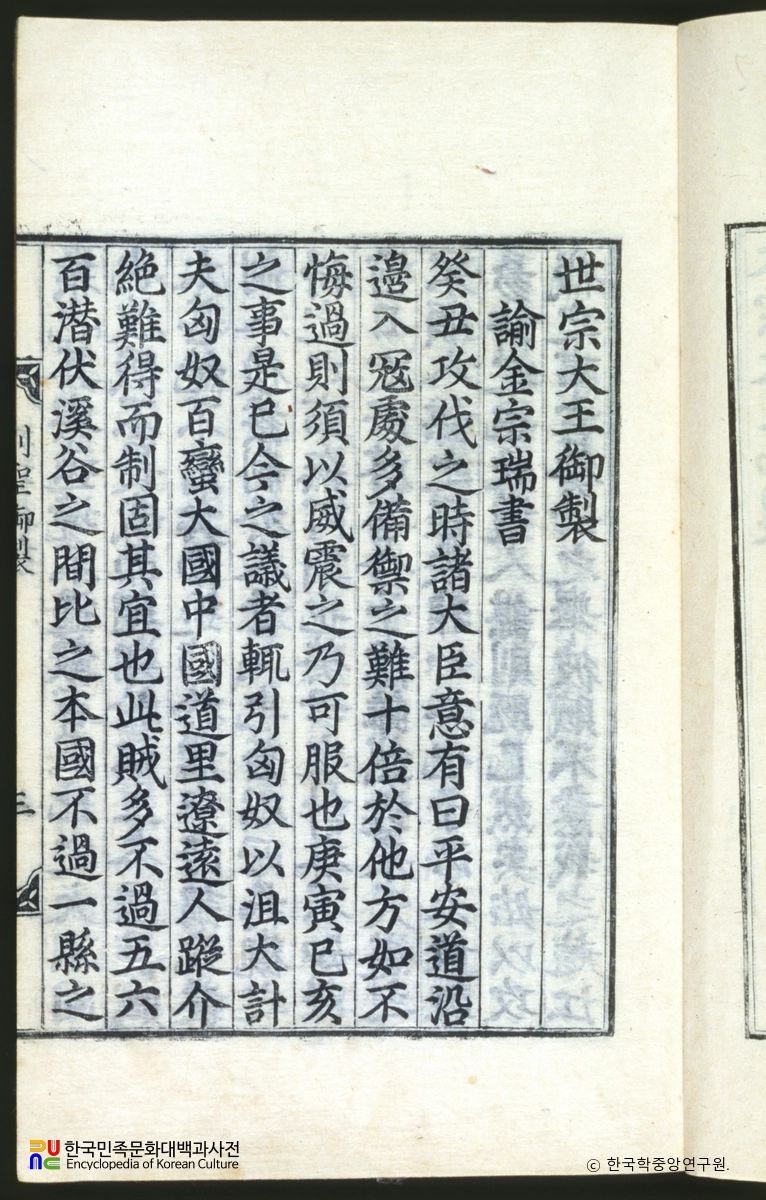 世宗大王御製
諭金宗瑞書
癸丑攻伐之時諸大臣意有曰平安道沿
邊入冦處多備禦之難十倍於他方如不
悔過則須以威震之乃可服也庚寅已亥
之事是已今之議者輒引匈奴以沮大計
夫匈奴百蠻大國中國道里遼遠人蹤介
絶難得而制固其宜也此賊多不過五六
百潜伏溪谷之間比之本國不過一縣之
列聖御製
三
한국민족문화대백과사전
Encyclopedia of Korean Culture
© 한국학중앙연구원.